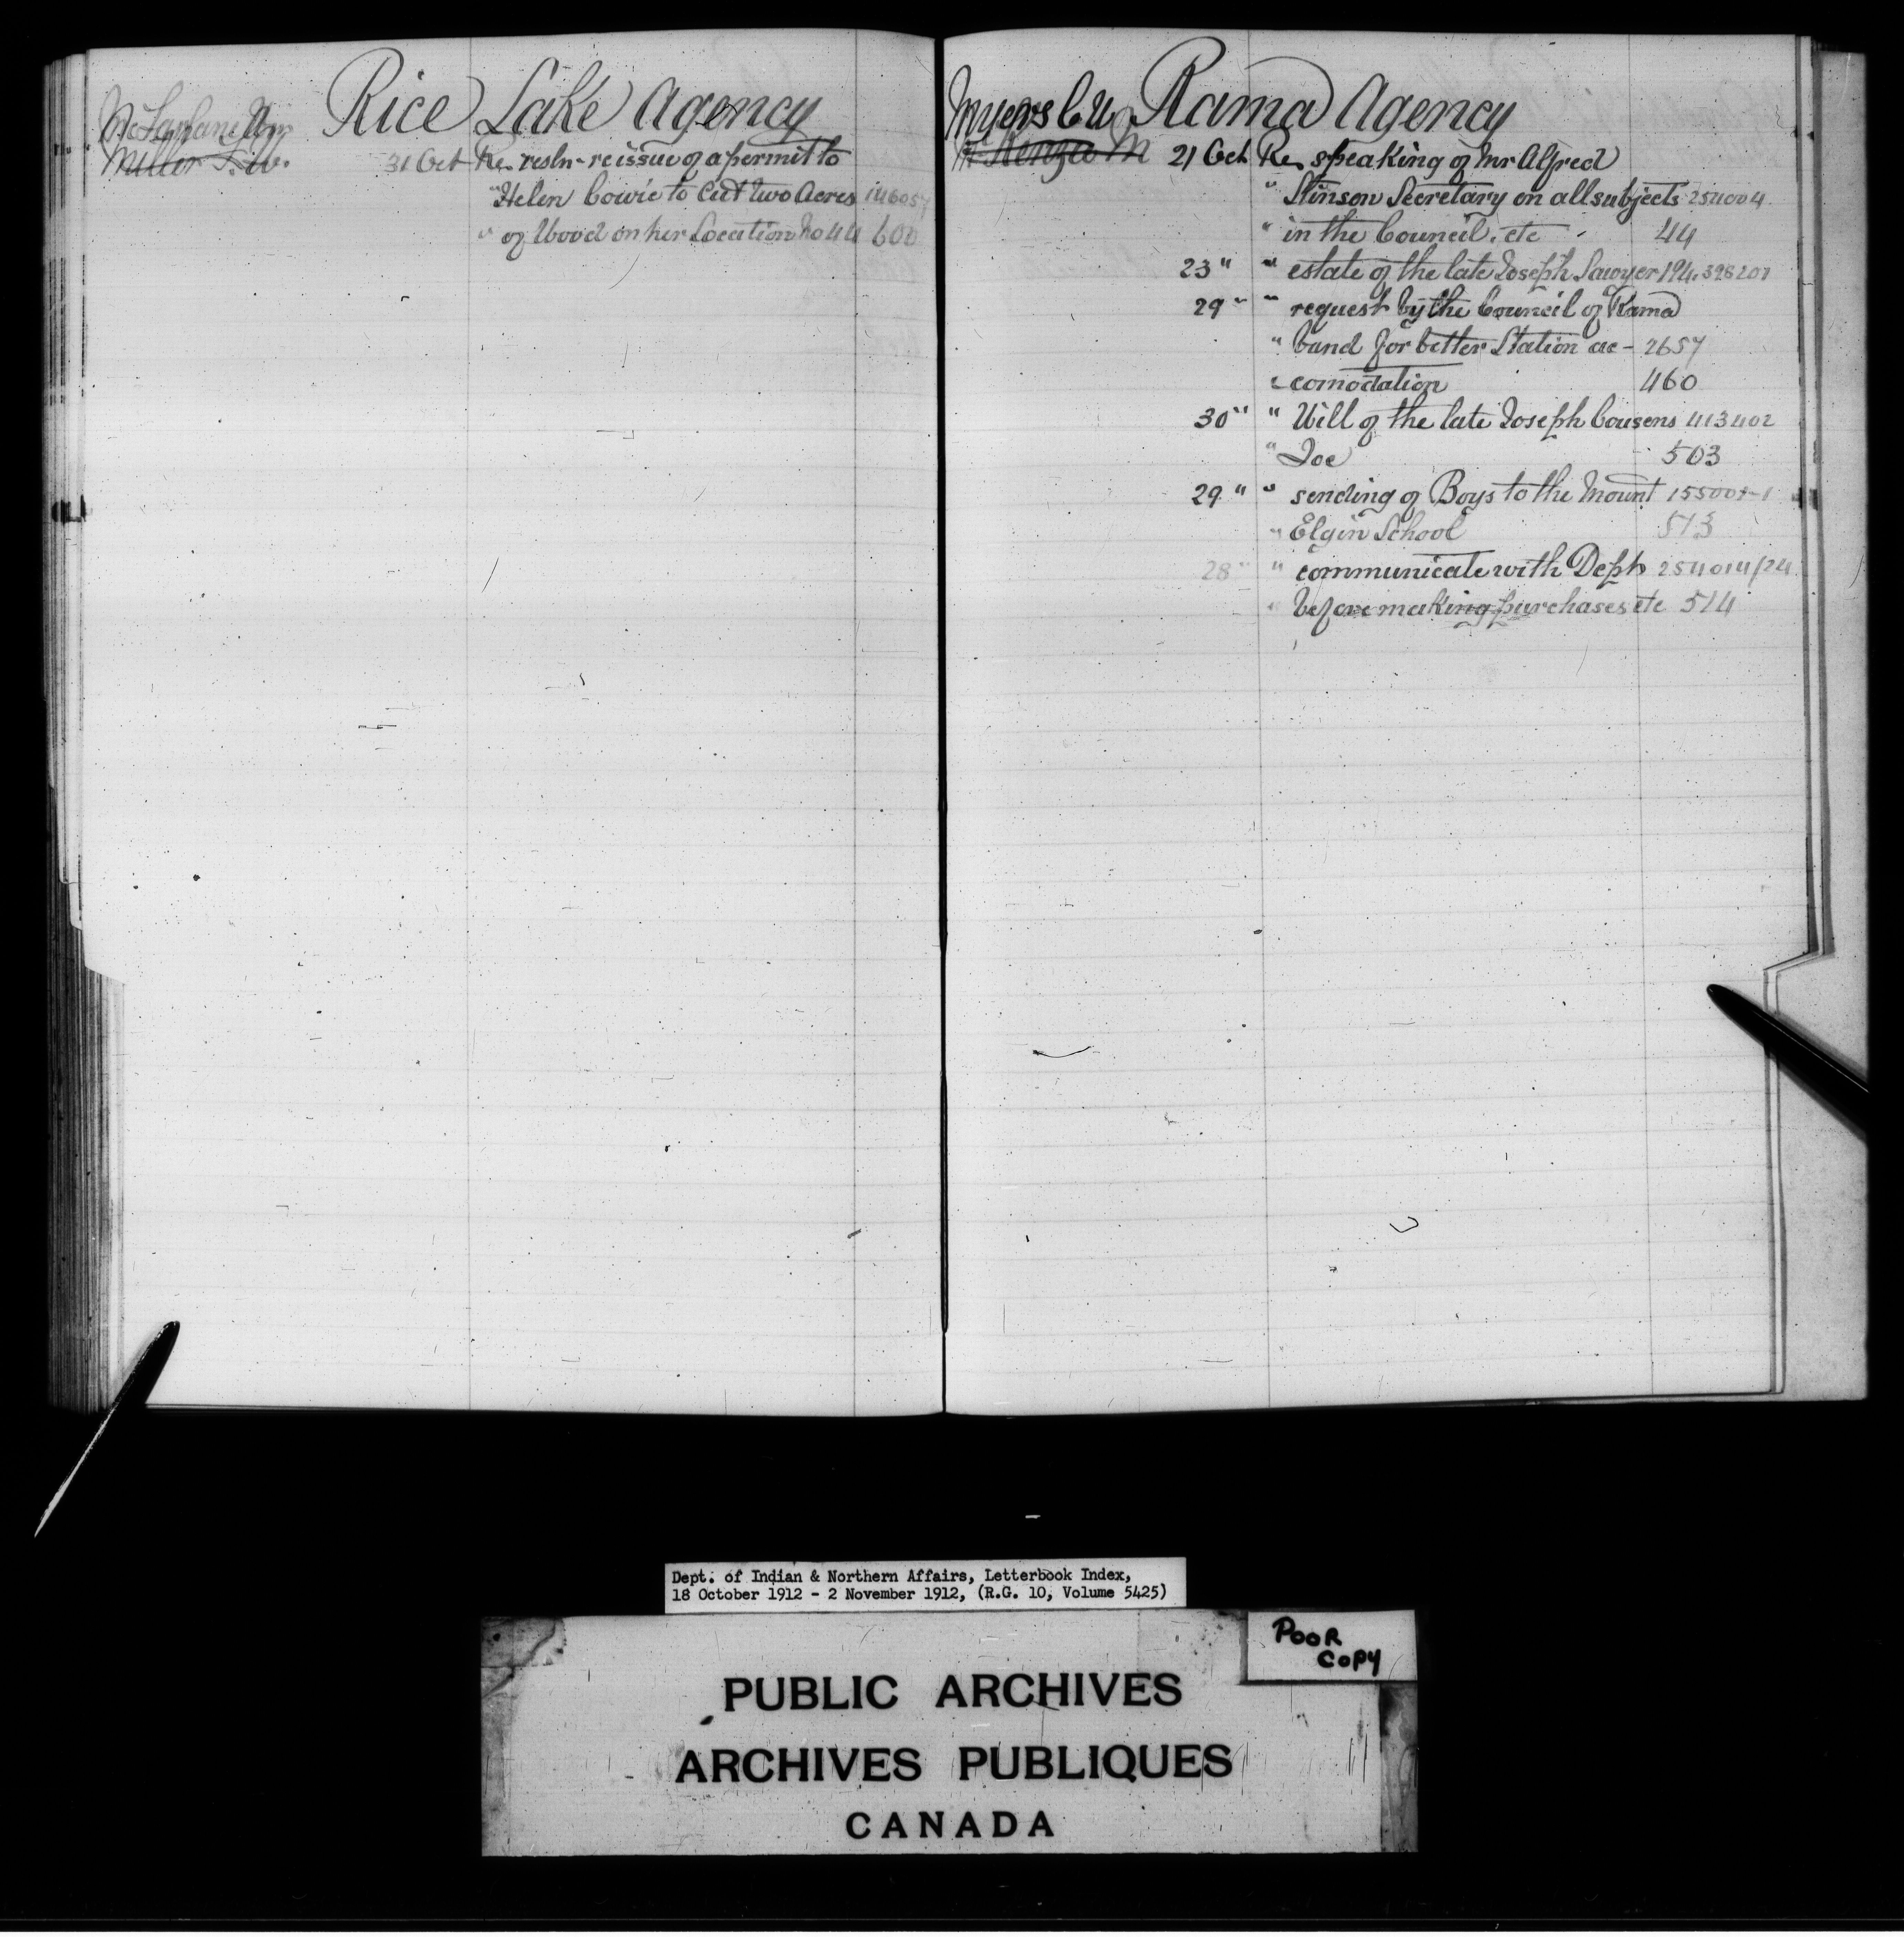 Rice Lake Agency
McFarlane Wm
Miller F. W.
31 Oct Re resln - reissue of a permit to
" Helen Cowie to Cut two Acres 146057
" of Wood on her Location No 44 600
Myers C U Rama Agency
McKenzie M
21 Oct Re speaking of Mr Alfred
" Stinson Secretary on all subjects 254004
" in the Council, etc 44
23 " " estate of the late Joseph Sawyer 194.398201
29 " " request by the Council of Rama
" band for better Station ac- 2657
" comodation 460
30 " " Will of the late Joseph Cousens 413402
" Joe 503
29 " " sending of Boys to the Mount 155001-1
" Elgin School 513
28 " " communicate with Dept 254014/24
" before making purchases etc 514
Dept. of Indian & Northern Affairs, Letterbook Index,
18 October 1912 - 2 November 1912, (R.G. 10, Volume 5425)
POOR
COPY
PUBLIC ARCHIVES
ARCHIVES PUBLIQUES
CANADA